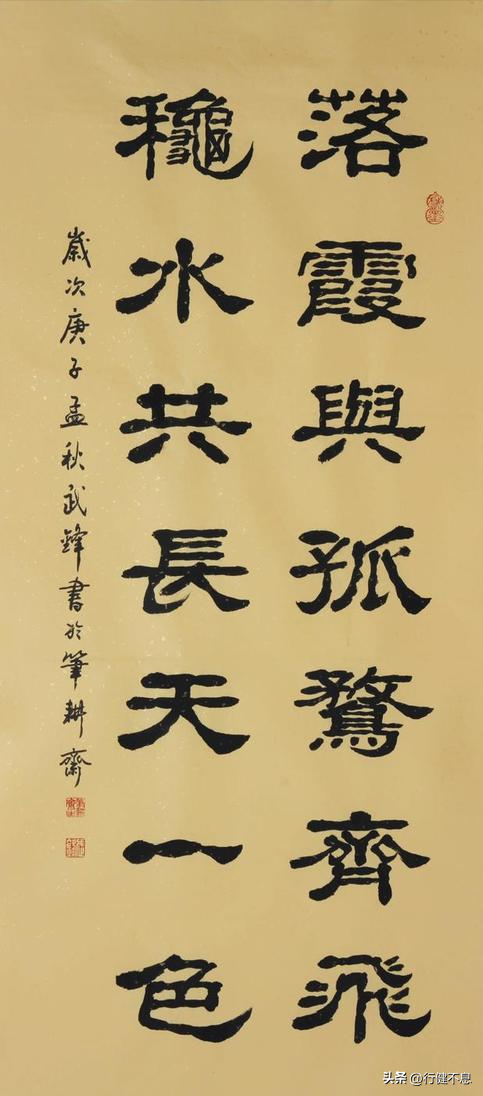 落霞與孤鶩齊飛
龝水共長天一色
歲次庚子孟秋武鋒書於筆耕齋
头条 @行健不息